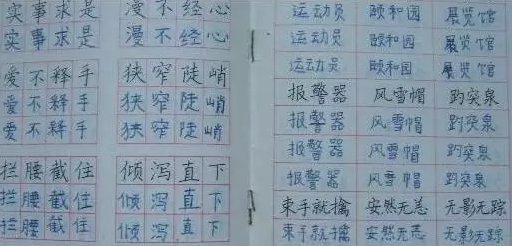 实事求是 漫不经心
实事求是 漫不经心
实事求是 漫不经心
爱不释手 狭窄陡峭
爱不释手 狭窄陡峭
爱不释手 狭窄陡峭
拦腰截住 倾泻直下
拦腰截住 倾泻直下
拦腰截住 倾泻直下
运动员 颐和园 展览馆
运动员 颐和园 展览馆
运动员 颐和园 展览馆
报警器 风雪帽 趵突泉
报警器 风雪帽 趵突泉
报警器 风雪帽 趵突泉
报警器 风雪帽 趵突泉
束手就擒 安然无恙 无影无踪
束手就擒 安然无恙 无影无踪